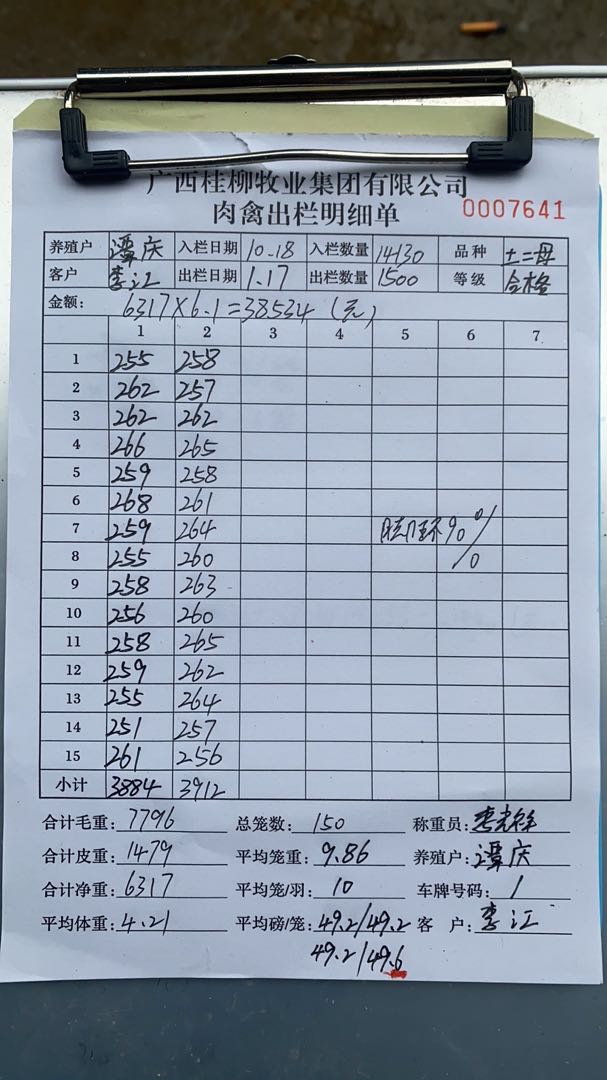 广西桂柳牧业集团有限公司
肉禽出栏明细单 0007641
养殖户 潭庆 入栏日期 10.18 入栏数量 14130 品种 土二母
客户 李江 出栏日期 1.17 出栏数量 1500 等级 合格
金额: 6317×6.1=38534(元)
1 2 3 4 5 6 7
1 255 258
2 262 257
3 262 262
4 266 265
5 259 258
6 268 261
7 259 264 90%
8 255 260
9 258 263
10 256 260
11 258 265
12 259 262
13 255 264
14 251 257
15 261 256
小计 3884 3912
合计毛重: 7796 总笼数: 150 称重员: 李
合计皮重: 1479 平均笼重: 9.86 养殖户: 潭庆
合计净重: 6317 平均笼/羽: 10 车牌号码: 1
平均体重: 4.21 平均磅/笼: 49.2/49.2 客 户: 李江
49.2/49.6